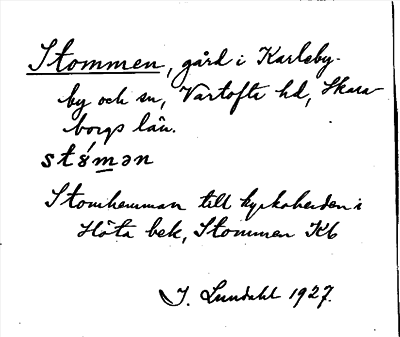 Stommen, gård i Karleby-
by och sn, Vartofta hd, Skara-
borgs län.
stómən
Stomhemman till kyrkoherden i
Höta bek, Stommen Kb
J. Lundahl 1927.